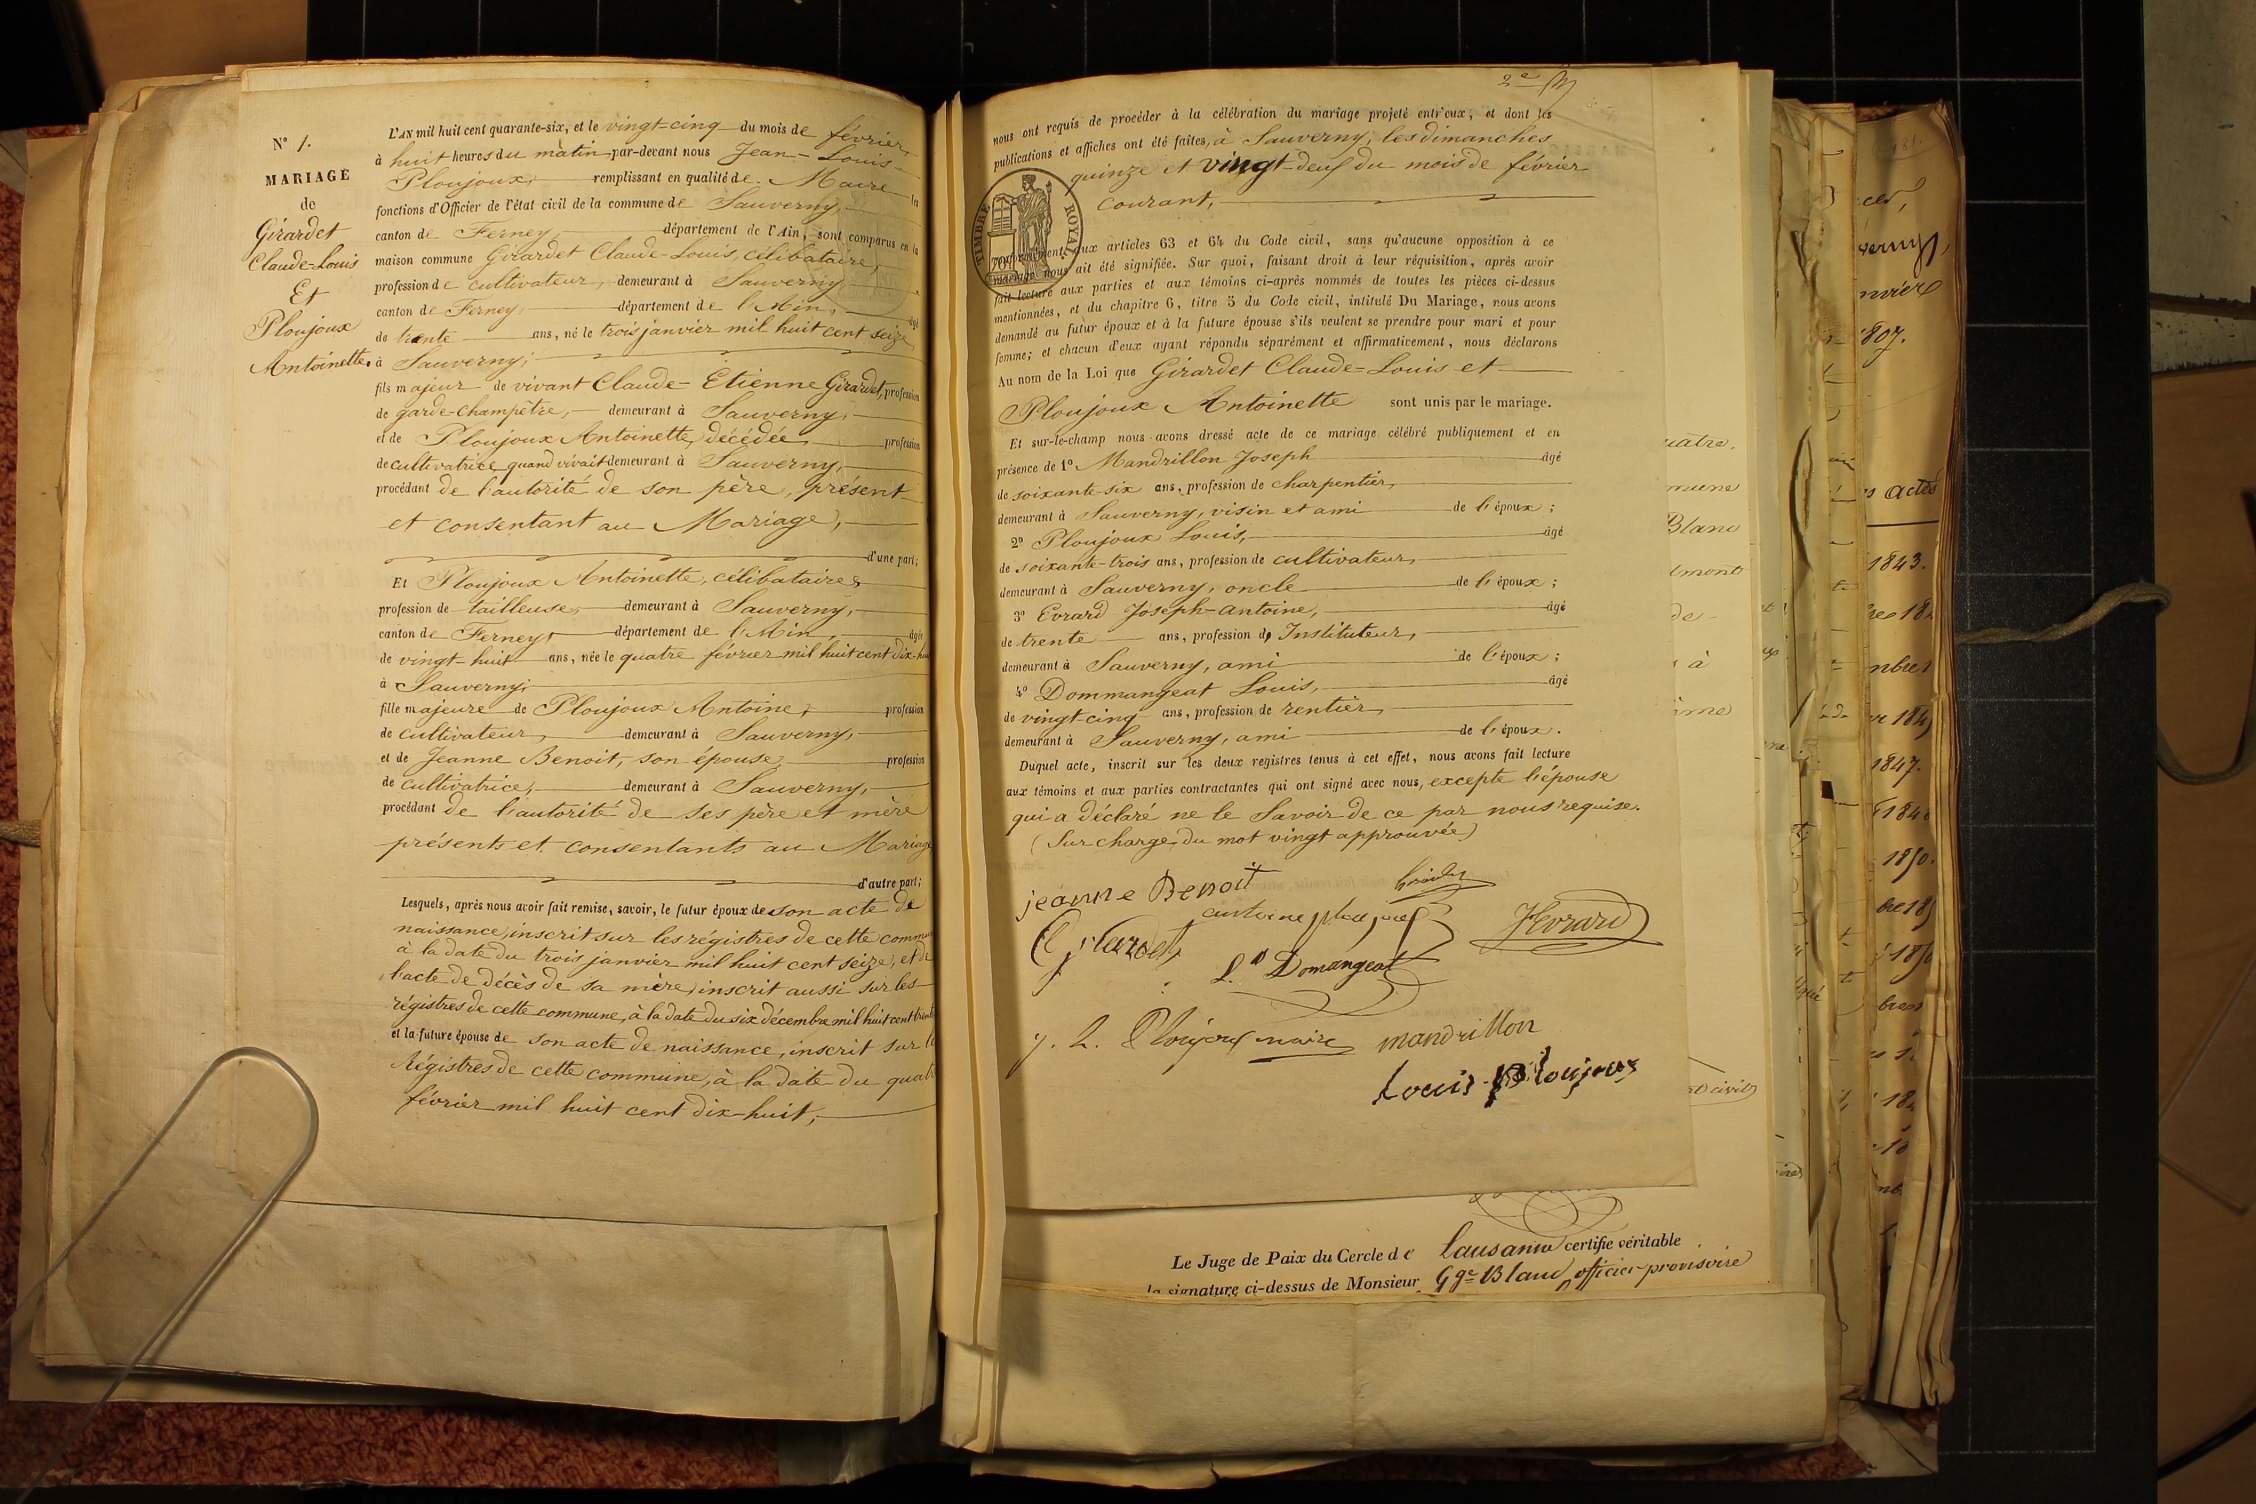 N° 1.
MARIAGE
de
Girardet
Claude-Louis
Et
Ploujoux
Antoinette.
L'AN mil huit cent quarante-six, et le vingt-cinq du mois de février,
à huit heures du matin, par-devant nous Jean-Louis
Ploujoux, remplissant en qualité de Maire les
fonctions d'Officier de l'état civil de la commune de Sauverny,
canton de Ferney, département de l'Ain, sont comparus en la
maison commune Girardet Claude-Louis, célibataire,
profession de cultivateur, demeurant à Sauverny,
canton de Ferney, département de l'Ain, âgé
de trente ans, né le trois janvier mil huit cent seize
à Sauverny;
fils majeur de vivant Claude-Etienne Girardet, profession
de garde-champêtre, demeurant à Sauverny,
et de Ploujoux Antoinette, décédée, profession
de cultivatrice quand vivait demeurant à Sauverny,
procédant de l'autorité de son père, présent
et consentant au Mariage,
d'une part;
Et Ploujoux Antoinette, célibataire,
profession de tailleuse, demeurant à Sauverny,
canton de Ferney, département de l'Ain, âgée
de vingt-huit ans, née le quatre février mil huit cent dix-hu
à Sauverny;
fille majeure de Ploujoux Antoine, profession
de cultivateur, demeurant à Sauverny,
et de Jeanne Benoit, son épouse, profession
de cultivatrice, demeurant à Sauverny,
procédant de l'autorité de ses père et mère
présents et consentants au Mariage
d'autre part;
Lesquels, après nous avoir fait remise, savoir, le futur époux de son acte de
naissance, inscrit sur les régistres de cette commu
à la date du trois janvier mil huit cent seize, et de
l'acte de décès de sa mère, inscrit aussi sur les
régistres de cette commune, à la date du six décembre mil huit cent trente
et la future épouse de son acte de naissance, inscrit sur le
Régistres de cette commune, à la date du quat
février mil huit cent dix-huit,
2e
nous ont requis de procéder à la célébration du mariage projeté entr'eux, et dont les
publications et affiches ont été faites, à Sauverny, les dimanches
quinze et vingt-deux du mois de février
courant,
TIMBRE ROYAL
conformément aux articles 63 et 64 du Code civil, sans qu'aucune opposition à ce
mariage nous ait été signifiée. Sur quoi, faisant droit à leur réquisition, après avoir
fait lecture aux parties et aux témoins ci-après nommés de toutes les pièces ci-dessus
mentionnées, et du chapitre 6, titre 5 du Code civil, intitulé Du Mariage, nous avons
demandé au futur époux et à la future épouse s'ils veulent se prendre pour mari et pour
femme; et chacun d'eux ayant répondu séparément et affirmativement, nous déclarons
Au nom de la Loi que Girardet Claude-Louis et
Ploujoux Antoinette sont unis par le mariage.
Et sur-le-champ nous avons dressé acte de ce mariage célébré publiquement et en
présence de 1° Mandrillon Joseph âgé
de soixante-six ans, profession de charpentier,
demeurant à Sauverny, visin et ami de l'époux;
2° Ploujoux Louis, âgé
de soixante-trois ans, profession de cultivateur,
demeurant à Sauverny, oncle de l'époux;
3° Evrard Joseph-Antoine, âgé
de trente ans, profession d' Instituteur,
demeurant à Sauverny, ami de l'époux;
4° Dommangeat Louis, âgé
de vingt-cinq ans, profession de rentier,
demeurant à Sauverny, ami de l'époux.
Duquel acte, inscrit sur les deux registres tenus à cet effet, nous avons fait lecture
aux témoins et aux parties contractantes qui ont signé avec nous, excepté l'épouse
qui a déclaré ne le savoir de ce par nous requise.
(Sur charge du mot vingt approuvée)
jeanne Benoit
antoine ploujoux
Girardet
JEvrard
L. Domangeat
j. L. Ploujoux maire
mandrillon
Louis Ploujoux
Le Juge de Paix du Cercle de Lausanne certifie véritable
la signature ci-dessus de Monsieur Gge Blanc, officier provisoire
1807.
actes
mune
Blanc
1843.
de
à
1847.
1850.
civil